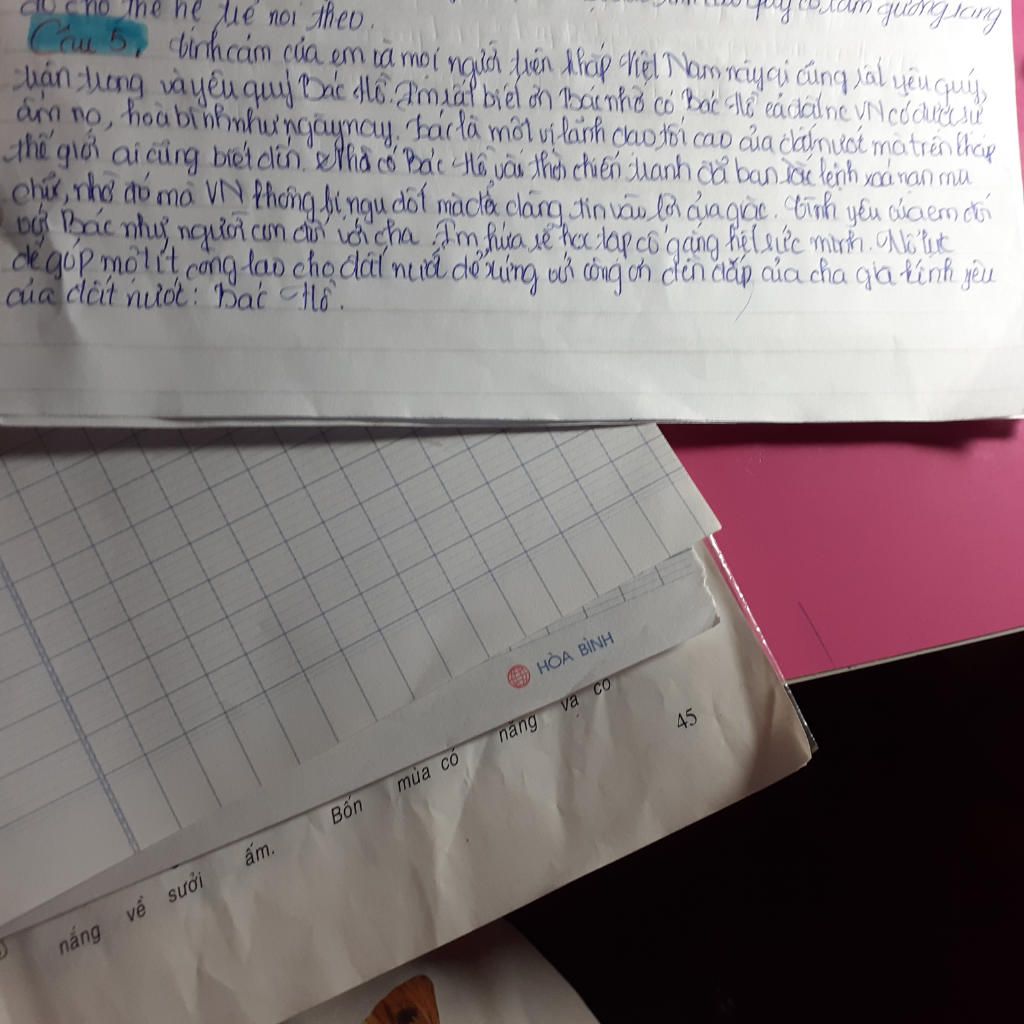 cho thế hệ trẻ noi theo.
quý có tấm gương sáng
Câu 5, tình cảm của em và mọi người trên khắp Việt Nam này ai cũng rất yêu quý,
trân trọng và yêu quý Bác Hồ. Em rất biết ơn Bác nhờ có Bác Hồ cả đất nc VN có được sự
ấm no, hoà bình như ngày nay. Bác là một vị lãnh đạo tối cao của đất nước mà trên khắp
thế giới ai cũng biết đến. Nhờ có Bác Hồ vào thời chiến tranh đã ban lệnh xoá nạn mù
chữ, nhờ đó mà VN không bị ngu dốt mà tin vào lời của giặc. Tình yêu của em đối
với Bác như người con đối với cha. Em hứa sẽ học tập cố gắng hết sức mình. Nỗ lực
để góp một ít công lao cho đất nước để xứng với công ơn đền đáp của cha già kính yêu
của đất nước: Bác Hồ.
HÒA BÌNH
45
Bốn mùa có nắng và có
nắng về sưởi ấm.